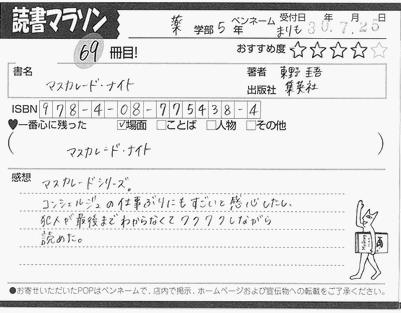 読書マラソン
69 冊目!
薬 学部 5 年 ペンネーム まりも 受付日 30年7月25日
おすすめ度 ☆☆☆☆☆
書名 マスカレード・ナイト
著者 東野 圭吾
出版社 集英社
ISBN 978-4-08-775438-4
♥一番心に残った ☑場面 □ことば □人物 □その他
マスカレード・ナイト
感想
マスカレードシリーズ。
コンシェルジュの仕事ぶりにもすごいと感心したし、
犯人が最後までわからなくてワクワクしながら
読めた。
●お寄せいただいたPOPはペンネームで、店内で掲示、ホームページおよび宣伝物への転載をご了承ください。